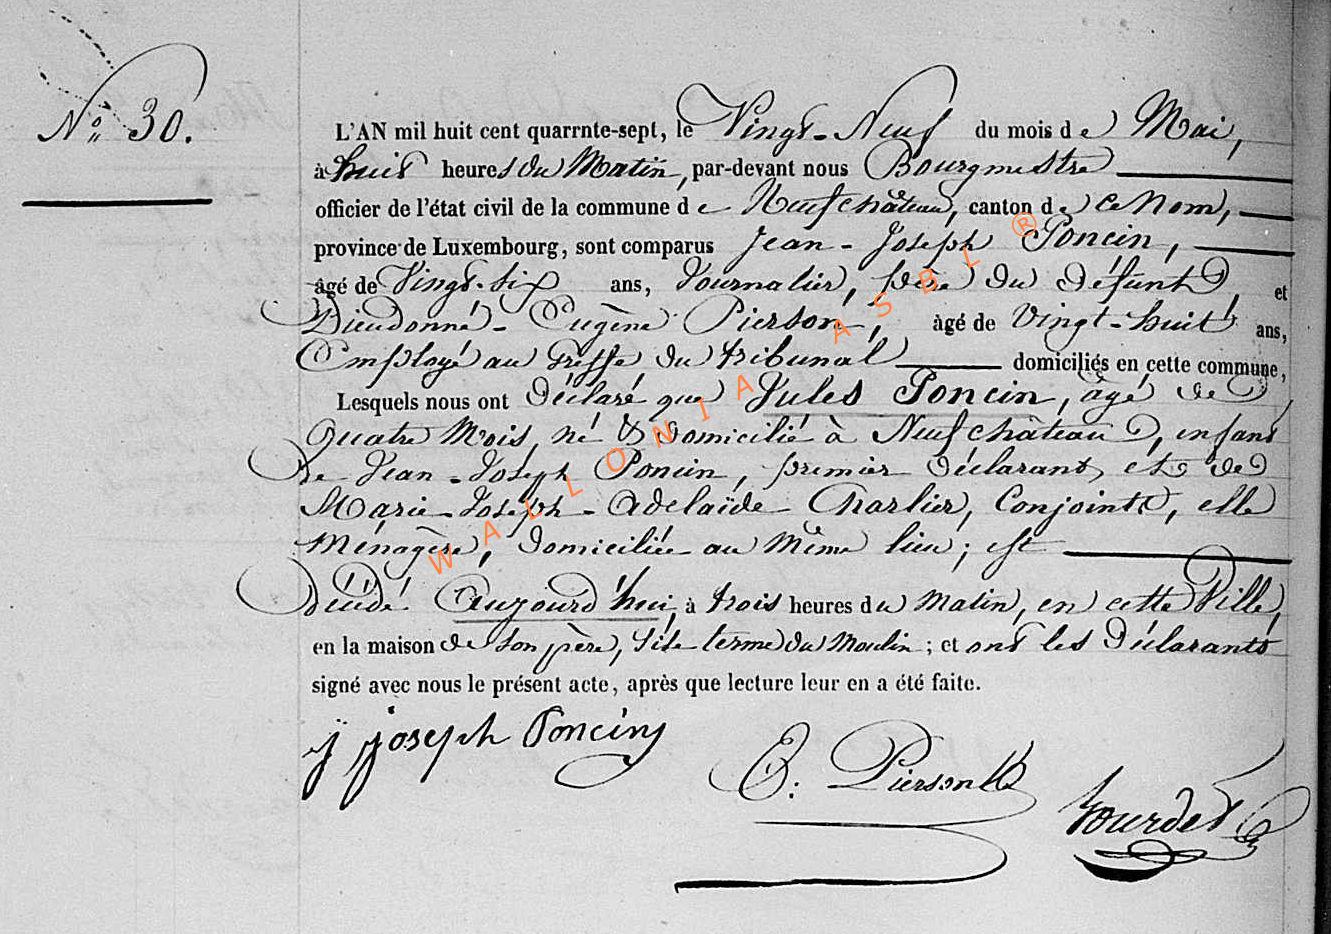 No 30.
L'AN mil huit cent quarrnte-sept, le Vingt-Neuf du mois de Mai,
à huit heures du Matin, par-devant nous Bourgmestre
officier de l'état civil de la commune de Neufchâteau, canton de ce Nom,
province de Luxembourg, sont comparus Jean-Joseph Poncin,
âgé de Vingt-six ans, Journalier, père du défunt, et
Dieudonné-Eugène Pierson, âgé de Vingt-huit ans,
Employé au Greffe du tribunal domiciliés en cette commune,
Lesquels nous ont déclaré que Jules Poncin, âgé de
Quatre Mois, né & domicilié à Neufchâteau, enfant
de Jean-Joseph Poncin, premier déclarant, et de
Marie-Joseph-Adelaïde Charlier, Conjointe, elle
Ménagère, domiciliée au même lieu; est
décédé Aujourd'hui, à trois heures du matin, en cette Ville,
en la maison de son père, site terme du Moulin; et ont les déclarants
signé avec nous le présent acte, après que lecture leur en a été faite.
j joseph Poncin
E: Pierson
Gourdet
WALLONIA ASBL ®